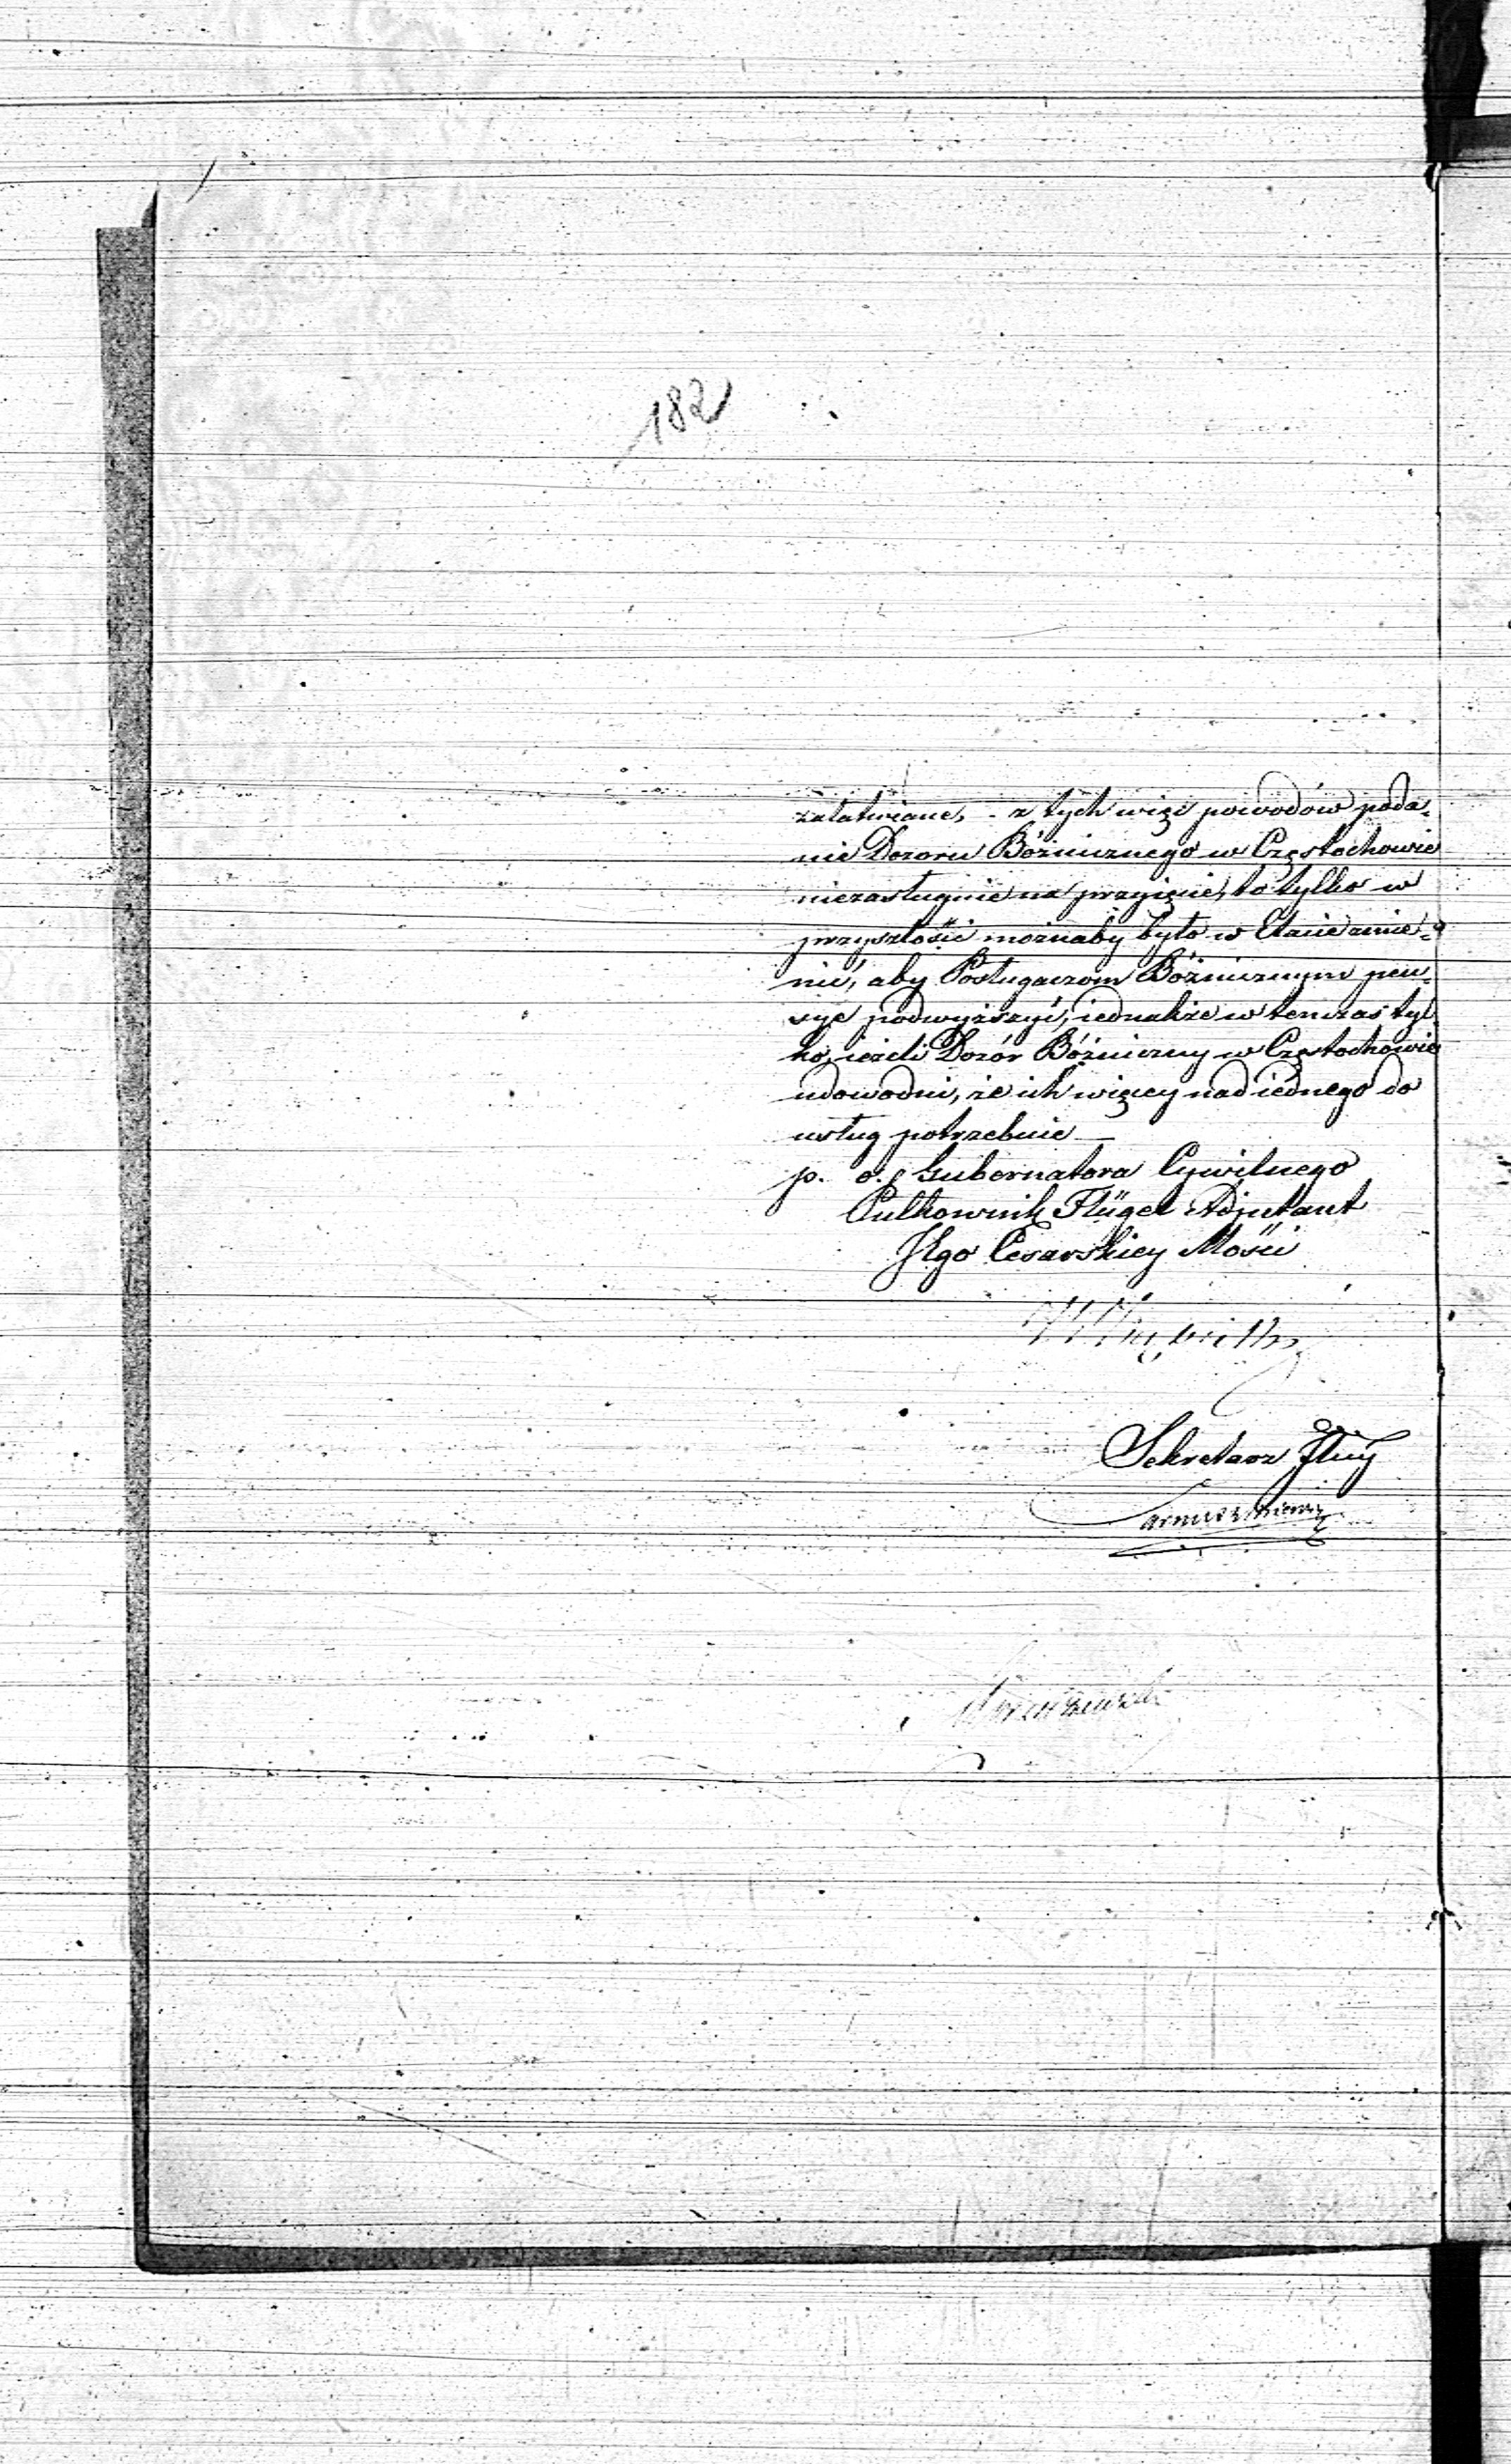 182
załatwiane, - z tych więc powodów poda=
nie Dozoru Bóżnicznego w Częstochowie
niezasługuie na przyięcie, to tylko w
przyszłości możnaby było w Etacie zmie=
nić, aby Posługaczom Bóżnicznym pen=
syę podwyższyć, iednakże w tenczas tyl=
ko, ieżeli Dozór Bóżniczny w Częstochowie
udowodni, że ich więcey nad iednego do
usług potrzebuie —
p. o. Gubernatora Cywilnego
Pułkownik Flügel Adjutant
JEgo Cesarskiey Mości
Sekretarz Jlny